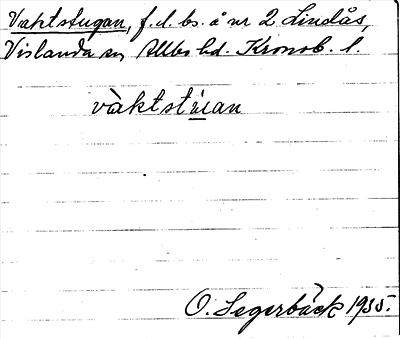 Vaktstugan, f.d. bs. å nr 2 Lindås,
Vislanda sn, Allbo hd. Kronob. l.
vàktstúan
O. Segerbäck 1935.